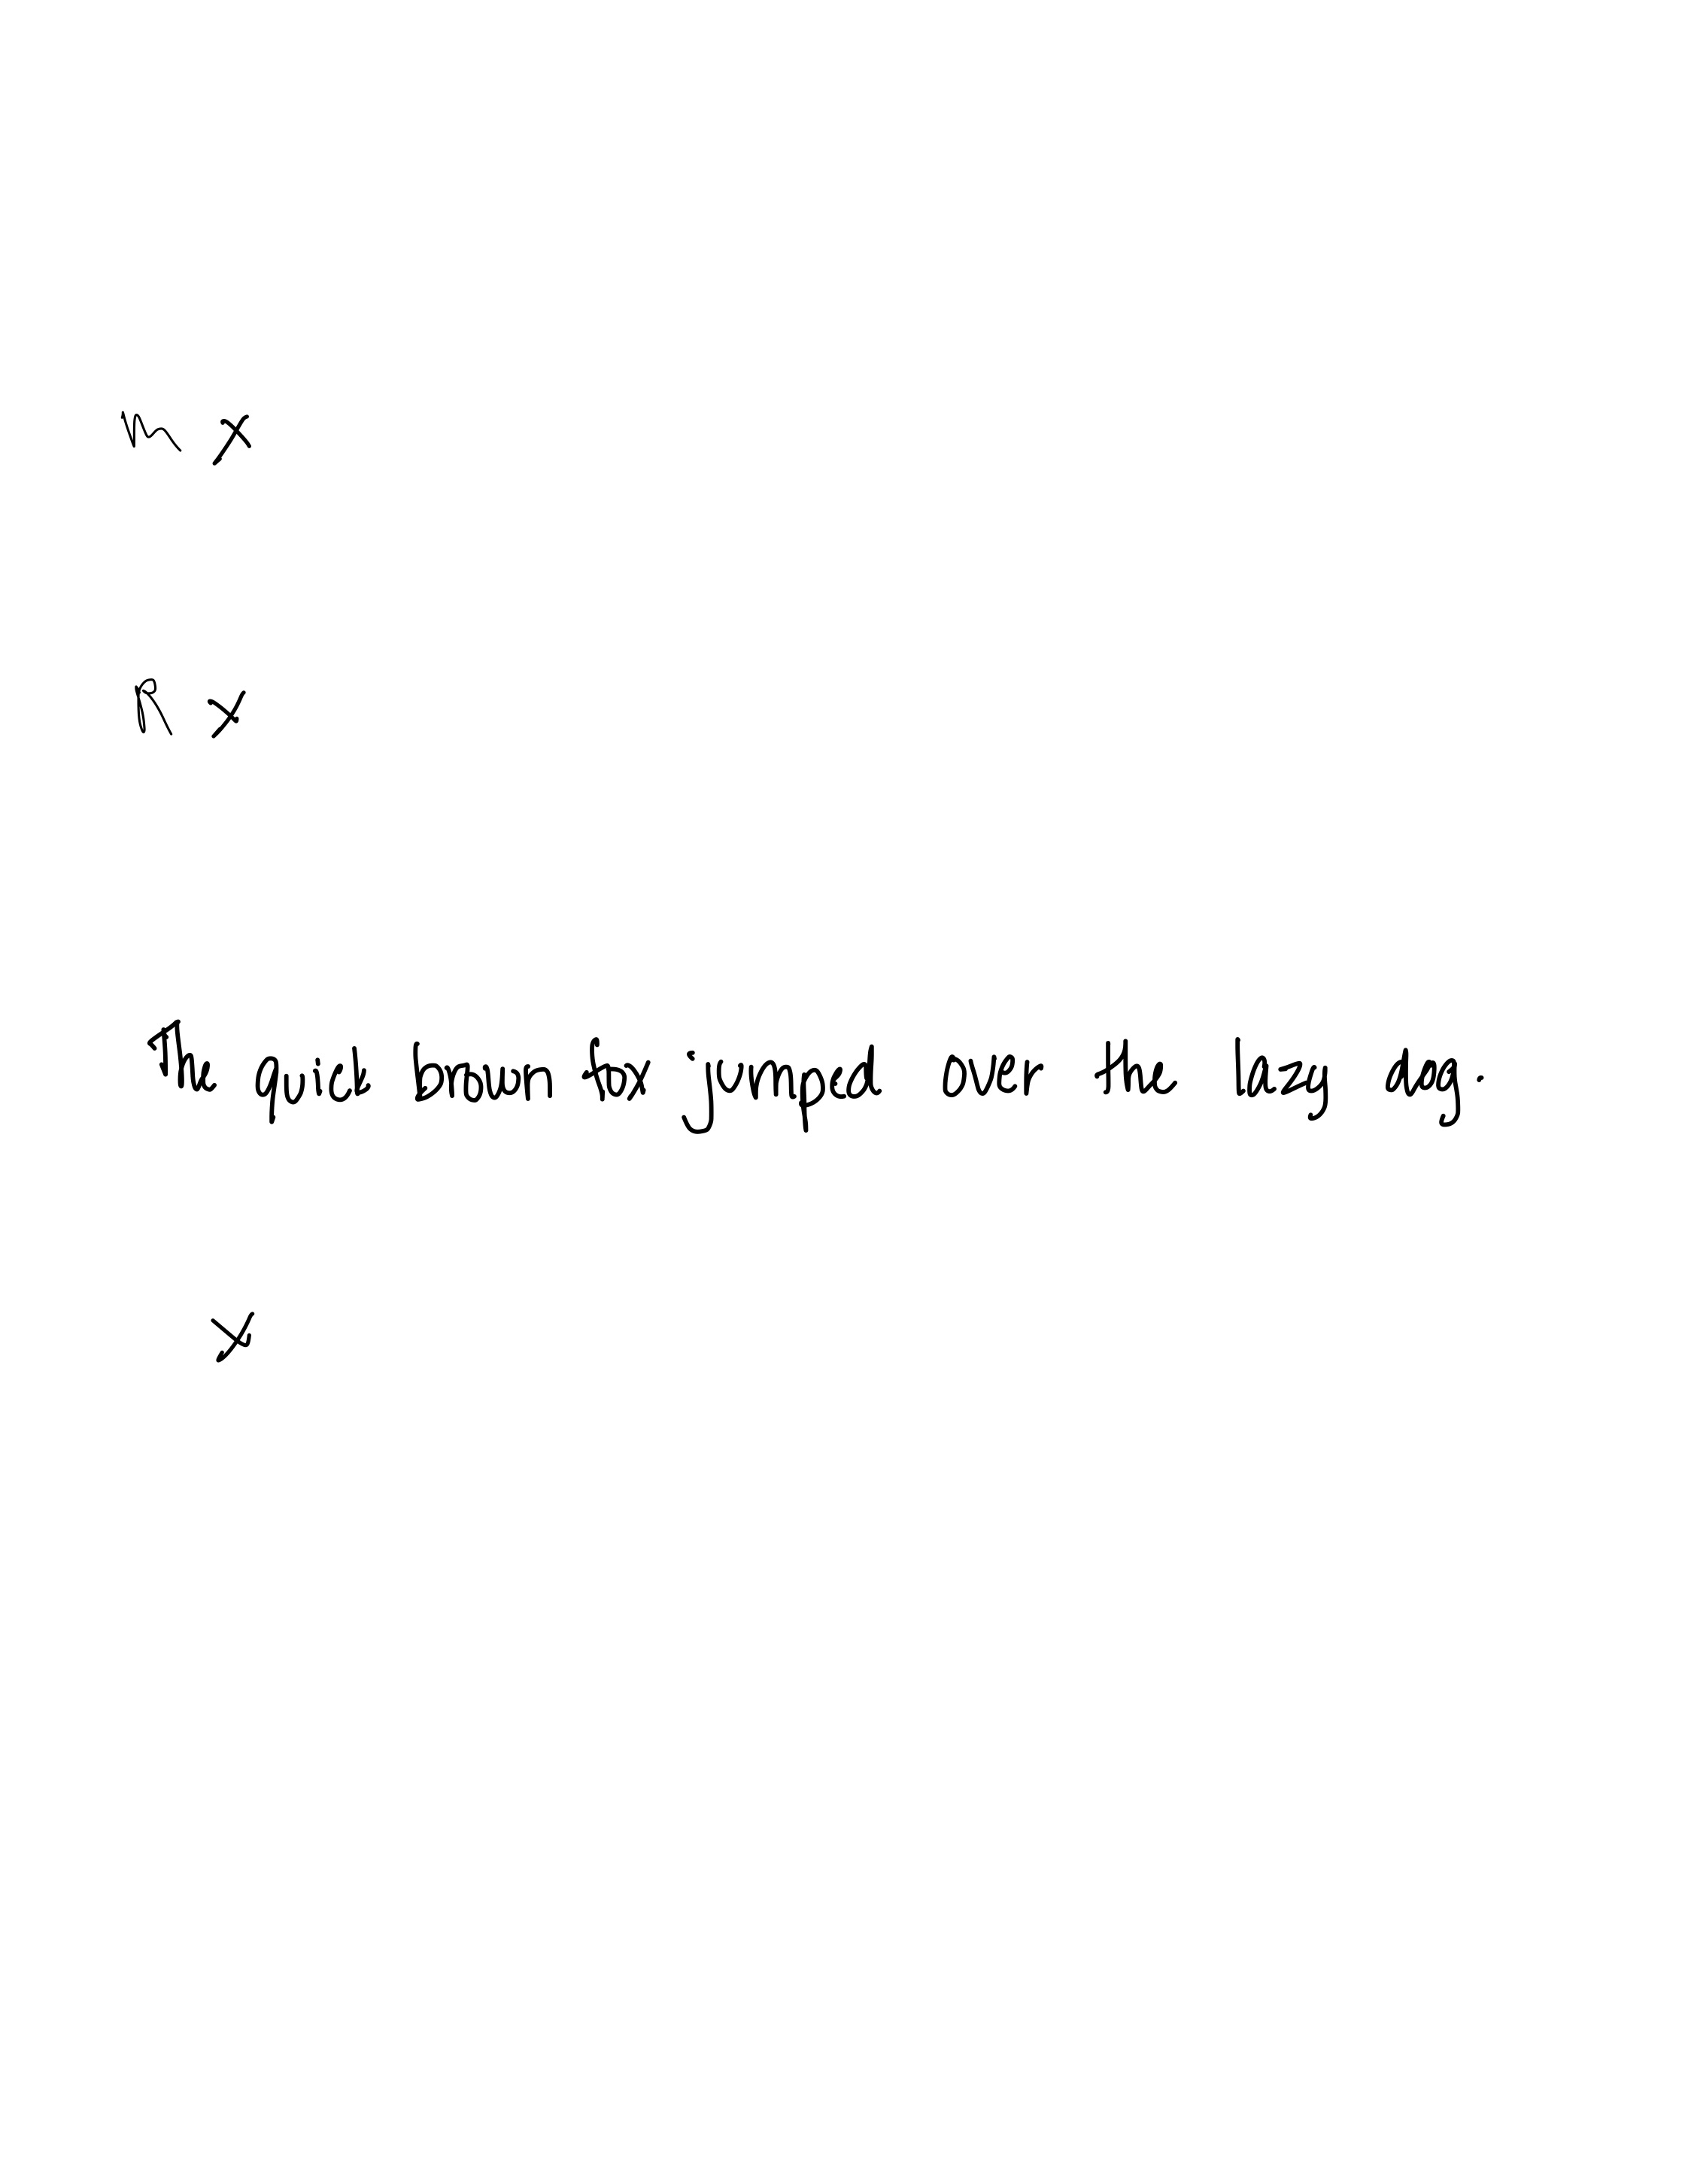 m x
R x
The quick brown fox jumped over the lazy dog.
x